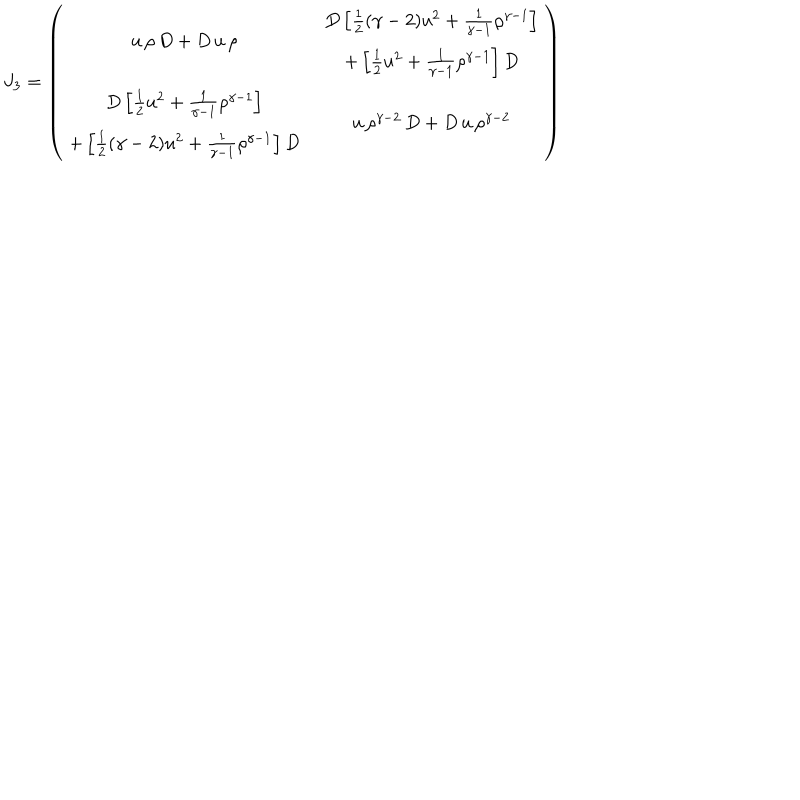 J_3 = \left( \begin{array}{cc} u\,\rho\,D + D\,u\,\rho & \begin{array}{c} D\left[\frac{1}{2}(\gamma-2)u^2 + \frac{1}{\gamma-1}\rho^{\gamma-1}\right] \\ + \left[\frac{1}{2}u^2 + \frac{1}{\gamma-1}\rho^{\gamma-1}\right] D \end{array} \\ \begin{array}{c} D\left[\frac{1}{2}u^2 + \frac{1}{\gamma-1}\rho^{\gamma-1}\right] \\ + \left[\frac{1}{2}(\gamma-2)u^2 + \frac{1}{\gamma-1}\rho^{\gamma-1}\right] D \end{array} & u\,\rho^{\gamma-2}\,D + D\,u\,\rho^{\gamma-2} \end{array} \right)